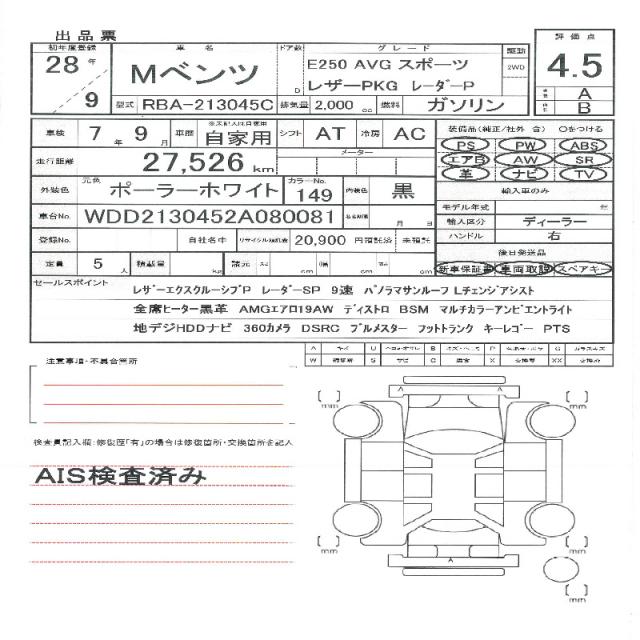 出品票
初年度登録 車名 ドア数 グレード 駆動 評価点
28年 Mベンツ D E250 AVG スポーツ 2WD 4.5
9 レザーPKG レーダーP A
型式 RBA-213045C 排気量 2,000 cc 燃料 ガソリン B
車検 7年 9月 車歴 自家用 シフト AT 冷房 AC 装備品(純正/社外 含) ○をつける
PS PW ABS
走行距離 27,526 km メーター エアB AW SR
革 ナビ TV
外装色 元色 ポーラーホワイト カラーNo. 149 内装色 黒 輸入車のみ
モデル年式 年
車台No. WDD2130452A080081 月 日 輸入区分 ディーラー
登録No. 自社名中 リサイクル預託金 20,900 円預託済 未預託 ハンドル 右
後日発送品
定員 5人 積載量 kg 諸元 長さ cm 幅 cm 高 cm 新車保証書 車両取説 スペアキー
セールスポイント
レザーエクスクルーシブP レーダーSP 9速 パノラマサンルーフ Lチェンジアシスト
全席ヒーター黒革 AMGエアロ19AW ディストロ BSM マルチカラーアンビエントライト
地デジHDDナビ 360カメラ DSRC ブルメスター フットトランク キーレゴー PTS
A キズ U B C P G
W S サビ C 腐食 X 交換要 XX 交換済
注意事項・不具合箇所
検査員記入欄:修復歴「有」の場合は修復箇所・交換箇所を記入
AIS検査済み
A
A
mm mm
mm mm
mm